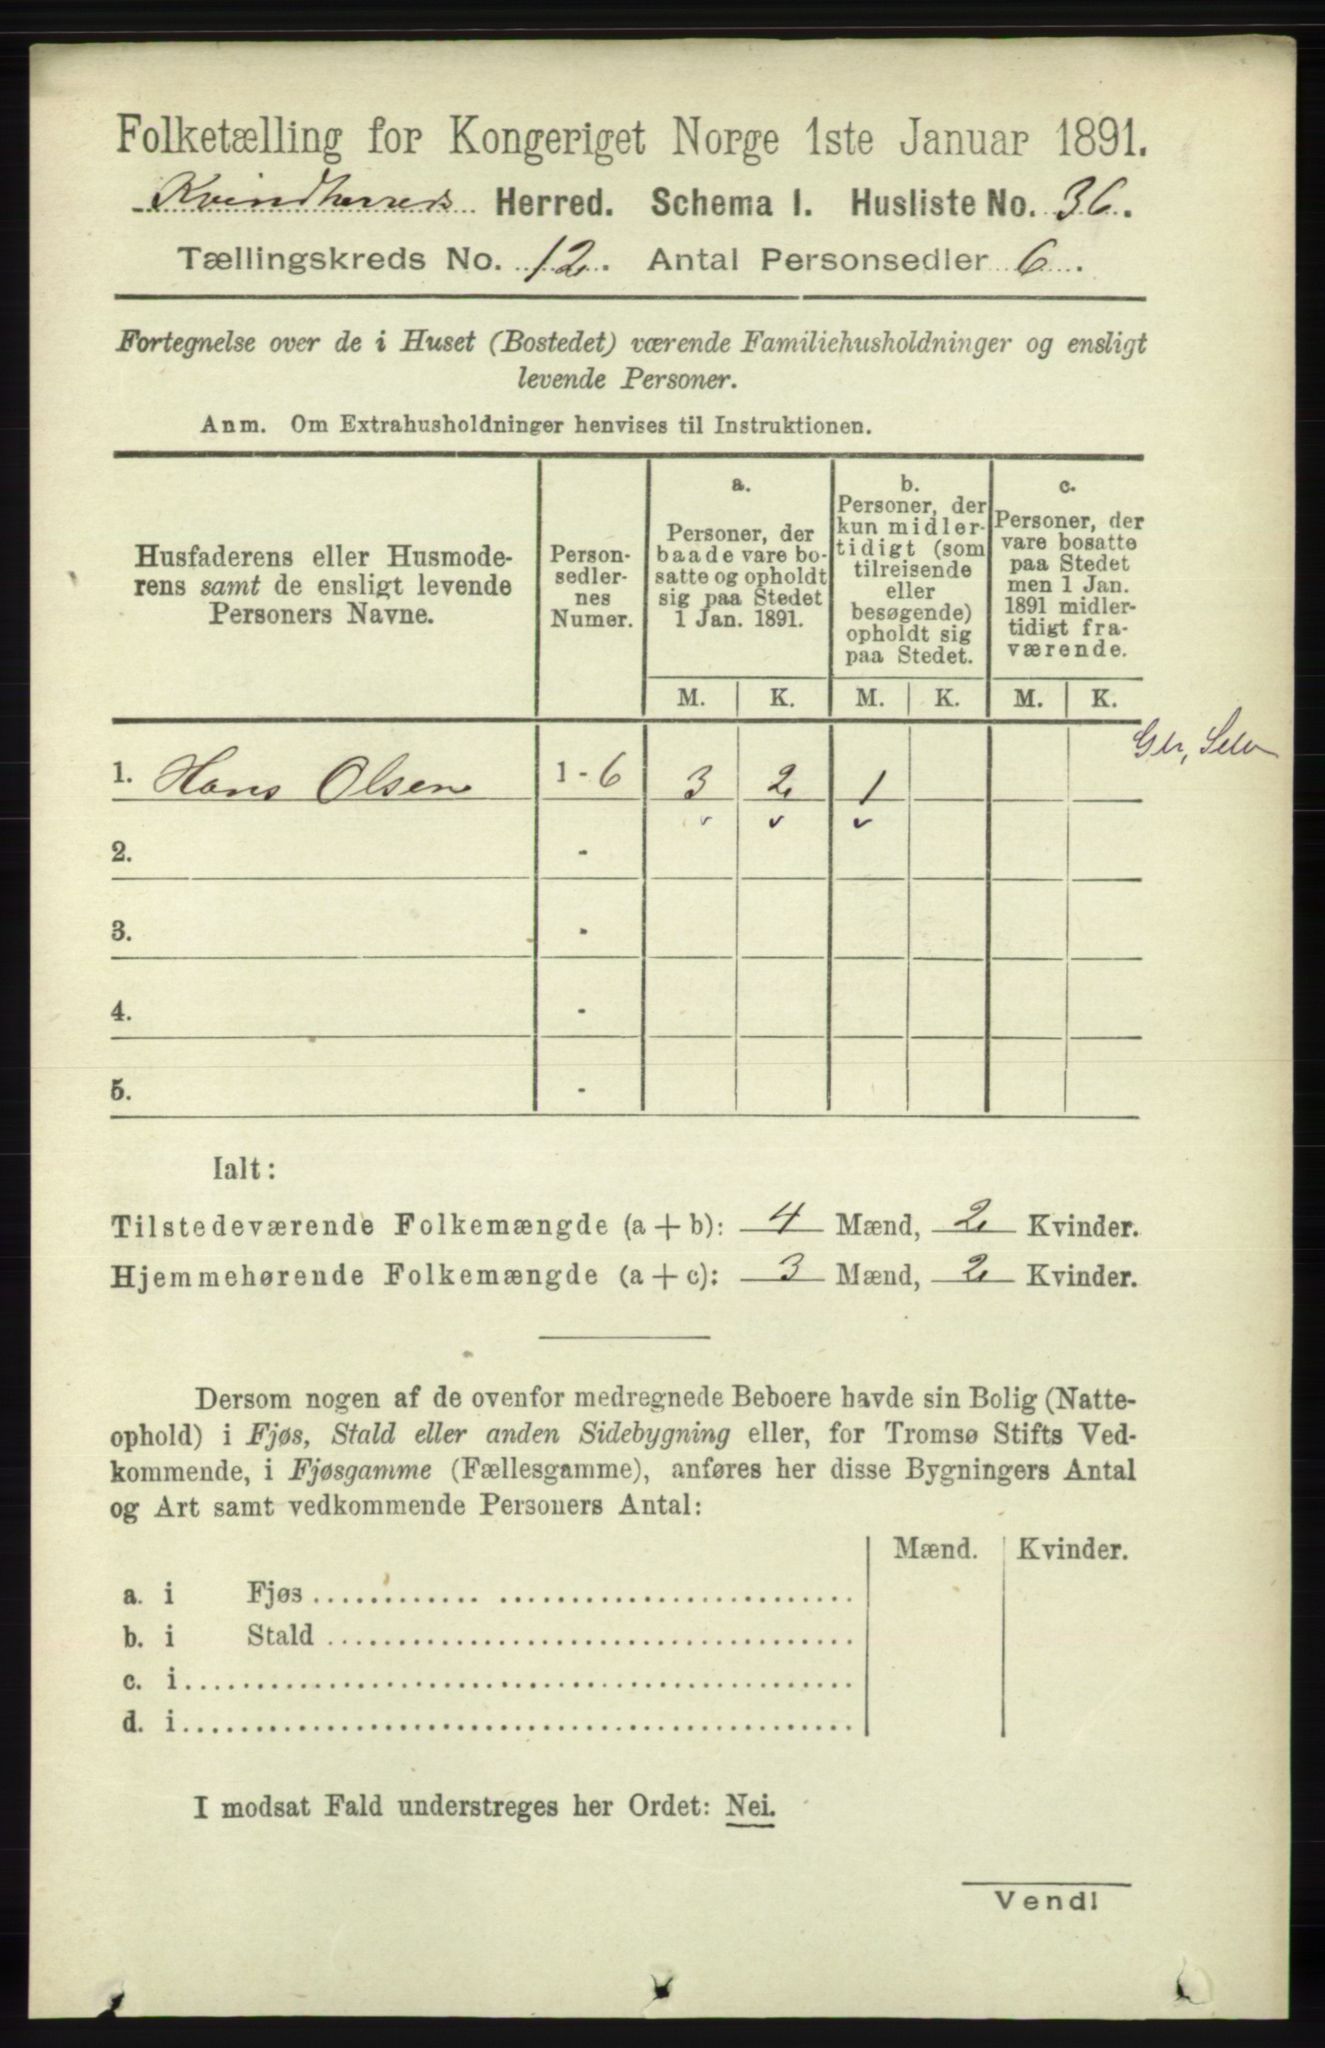 Folketælling for Kongeriget Norge 1ste Januar 1891.
Kvindherreds Herred. Schema I. Husliste No. 36.
Tællingskreds No. 12. Antal Personsedler 6.
Fortegnelse over de i Huset (Bostedet) værende Familiehusholdninger og ensligt
levende Personer.
Anm. Om Extrahusholdninger henvises til Instruktionen.
Husfaderens eller Husmode-
rens samt de ensligt levende
Personers Navne.
Person-
sedler-
nes
Numer.
a.
Personer, der
baade vare bo-
satte og opholdt
sig paa Stedet
1 Jan. 1891.
b.
Personer, der
kun midler-
tidigt (som
tilreisende
eller
besøgende)
opholdt sig
paa Stedet.
c.
Personer, der
vare bosatte
paa Stedet
men 1 Jan.
1891 midler-
tidigt fra-
værende.
M. K. M. K. M. K.
1. Hans Olsen 1 - 6 3 2 1
2. -
3. -
4. -
5. -
Ialt:
Tilstedeværende Folkemængde (a + b): 4 Mænd, 2 Kvinder.
Hjemmehørende Folkemængde (a + c): 3 Mænd, 2 Kvinder.
Dersom nogen af de ovenfor medregnede Beboere havde sin Bolig (Natte-
ophold) i Fjøs, Stald eller anden Sidebygning eller, for Tromsø Stifts Ved-
kommende, i Fjøsgamme (Fællesgamme), anføres her disse Bygningers Antal
og Art samt vedkommende Personers Antal:
Mænd. Kvinder.
a. i Fjøs
b. i Stald
c. i
d. i
I modsat Fald understreges her Ordet: Nei.
Vend!